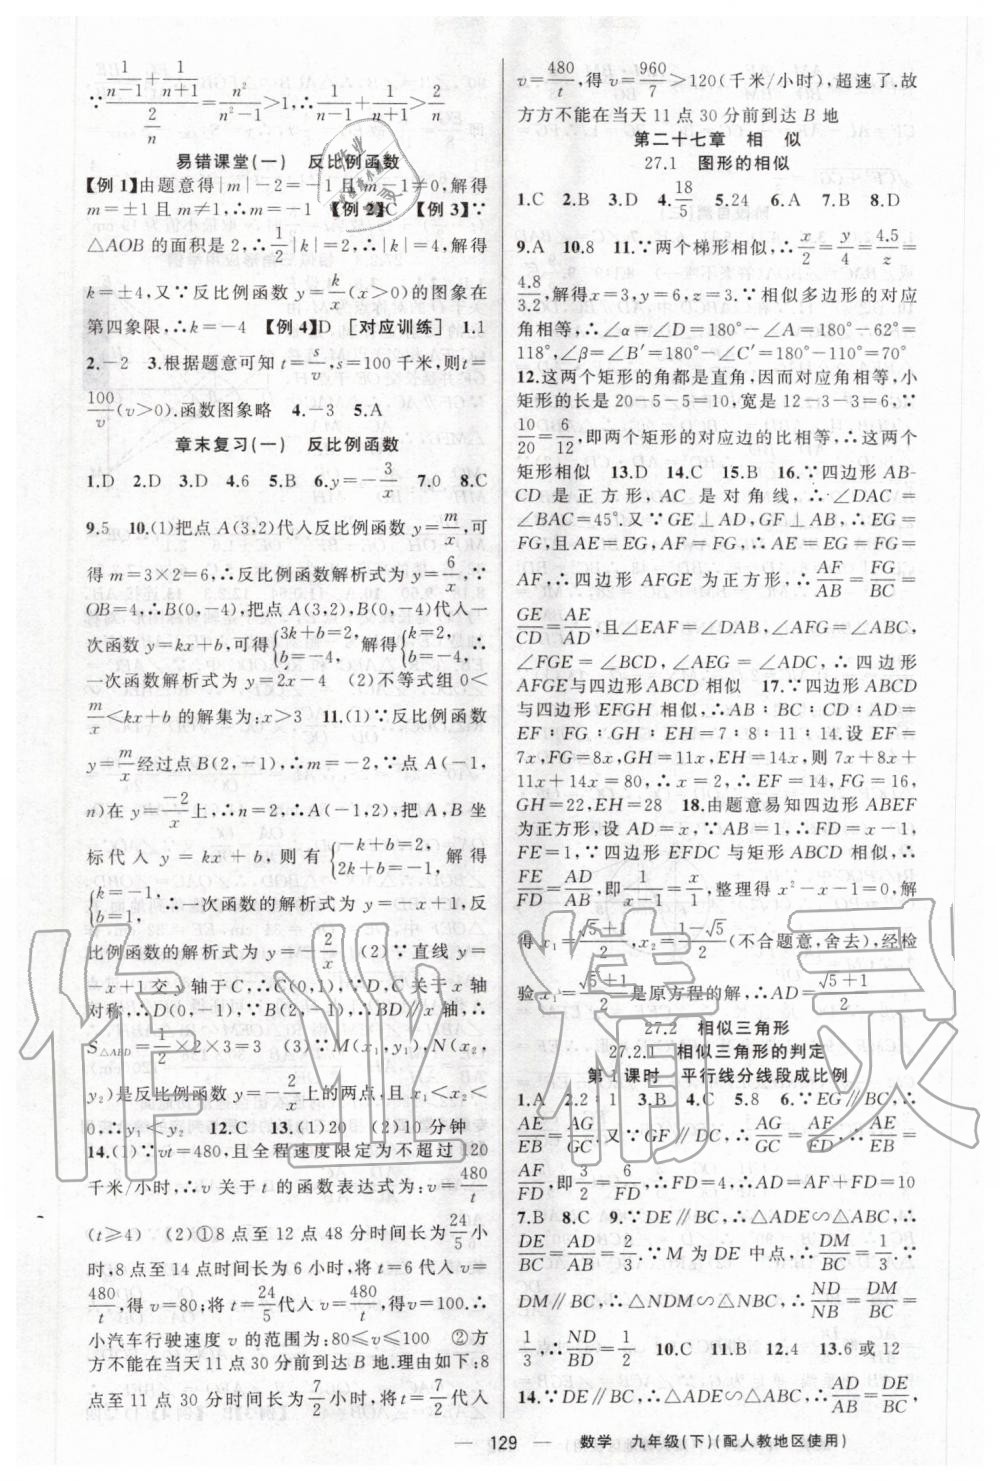 ∵ (1/(n-1)+1/(n+1))/(2/n)=n²/(n²-1)>1,∴1/(n-1)+1/(n+1)>2/n
易错课堂(一) 反比例函数
【例1】由题意得|m|-2=-1且m-1≠0,解得
m=±1且m≠1,∴m=-1 【例2】C 【例3】∵
△AOB的面积是2,∴1/2|k|=2,∴|k|=4,解得
k=±4,又∵反比例函数y=k/x(x>0)的图象在
第四象限,∴k=-4 【例4】D [对应训练] 1.1
2.-2 3.根据题意可知t=s/v,s=100千米,则t=
100/v(v>0).函数图象略 4.-3 5.A
章末复习(一) 反比例函数
1.D 2.D 3.D 4.6 5.B 6.y=-3/x 7.0 8.C
9.5 10.(1)把点A(3,2)代入反比例函数y=m/x,可
得m=3×2=6,∴反比例函数解析式为y=6/x,∵
OB=4,∴B(0,-4),把点A(3,2),B(0,-4)代入一
次函数y=kx+b,可得{3k+b=2,b=-4,解得{k=2,b=-4,∴
一次函数解析式为y=2x-4 (2)不等式组0<
m/x<kx+b的解集为:x>3 11.(1)∵反比例函数
y=m/x经过点B(2,-1),∴m=-2.∵点A(-1,
n)在y=-2/x上,∴n=2,∴A(-1,2),把A,B坐
标代入y=kx+b,则有{-k+b=2,2k+b=-1,解得
{k=-1,b=1,∴一次函数的解析式为y=-x+1,反
比例函数的解析式为y=-2/x (2)∵直线y=
-x+1交y轴于C,∴C(0,1),∵D,C关于x轴
对称,∴D(0,-1),∵B(2,-1),∴BD∥x轴,∴
S△ABD=1/2×2×3=3 (3)∵M(x₁,y₁),N(x₂,
y₂)是反比例函数y=-2/x上的两点,且x₁<x₂<
0,∴y₁<y₂ 12.C 13.(1)20 (2)10分钟
14.(1)∵vt=480,且全程速度限定为不超过120
千米/小时,∴v关于t的函数表达式为:v=480/t
(t≥4) (2)①8点至12点48分时间长为24/5小
时,8点至14点时间长为6小时,将t=6代入v=
480/t,得v=80;将t=24/5代入v=480/t,得v=100.∴
小汽车行驶速度v的范围为:80≤v≤100 ②方
方不能在当天11点30分前到达B地.理由如下:8
点至11点30分时间长为7/2小时,将t=7/2代入
v=480/t,得v=960/7>120(千米/小时),超速了.故
方方不能在当天11点30分前到达B地
第二十七章 相 似
27.1 图形的相似
1.C 2.B 3.D 4.18/5 5.24 6.A 7.B 8.D
9.A 10.8 11.∵两个梯形相似,∴x/2=y/4=4.5/z=
4.8/3.2,解得x=3,y=6,z=3.∵相似多边形的对应
角相等,∴∠α=∠D=180°-∠A=180°-62°=
118°,∠β=∠B′=180°-∠C′=180°-110°=70°
12.∵这两个矩形的角都是直角,因而对应角相等,小
矩形的长是20-5-5=10,宽是12-3-3=6,∵
10/20=6/12,即两个矩形的对应边的比相等,∴这两个
矩形相似 13.D 14.C 15.B 16.∵四边形AB-
CD是正方形,AC是对角线,∴∠DAC=
∠BAC=45°.又∵GE⊥AD,GF⊥AB,∴EG=
FG,且AE=EG,AF=FG,∴AE=EG=FG=
AF,∴四边形AFGE为正方形,∴AF/AB=FG/BC=
GE/CD=AE/AD,且∠EAF=∠DAB,∠AFG=∠ABC,
∠FGE=∠BCD,∠AEG=∠ADC,∴四边形
AFGE与四边形ABCD相似 17.∵四边形ABCD
与四边形EFGH相似,∴AB∶BC∶CD∶AD=
EF∶FG∶GH∶EH=7∶8∶11∶14.设EF=
7x,FG=8x,GH=11x,EH=14x,则7x+8x+
11x+14x=80,∴x=2,∴EF=14,FG=16,
GH=22,EH=28 18.由题意易知四边形ABEF
为正方形,设AD=x,∵AB=1,∴FD=x-1,
FE=1,∵四边形EFDC与矩形ABCD相似,∴
FE/FD=AD/AB,即1/(x-1)=x/1,整理得x²-x-1=0,解
得x₁=(√5+1)/2,x₂=(1-√5)/2(不合题意,舍去),经检
验x₁=(√5+1)/2是原方程的解.∴AD=(√5+1)/2
27.2 相似三角形
27.2.1 相似三角形的判定
第1课时 平行线分线段成比例
1.A 2.2∶1 3.B 4.C 5.8 6.∵EG∥BC,∴
AE/EB=AG/GC.又∵GF∥DC,∴AG/GC=AF/FD,∴AE/EB=
AF/FD,即3/2=6/FD,∴FD=4,∴AD=AF+FD=10
7.B 8.C 9.∵DE∥BC,∴△ADE∽△ABC,∴
DE/BC=AD/AB=2/3.∵M为DE中点,∴DM/BC=1/3.∵
DM∥BC,∴△NDM∽△NBC,∴ND/NB=DM/BC=
1/3,∴ND/BD=1/2 10.C 11.B 12.4 13.6或12
14.∵DE∥BC,∴△ADE∽△ABC,∴AD/AB=DE/BC,
— 129 — 数学 九年级(下)(配人教地区使用)
作业精灵